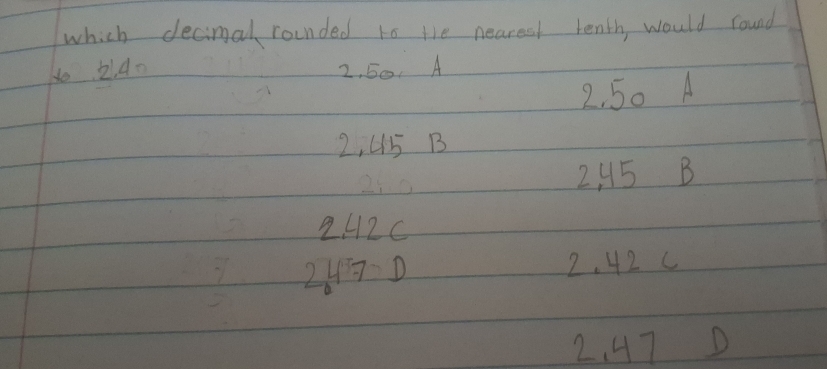 which decimal, rounded to the nearest tenth, would round
to 2.40
2.50. A
2.45 B
2.42 C
2.47 D
2.50 A
2.45 B
2.42 C
2.47 D